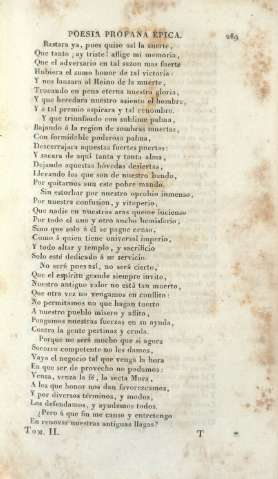 POESIA PROFANA ÉPICA. 289
Bastara ya, pues quiso asi la suerte,
Que tanto ¡ay triste! aflige mi memoria,
Que el adversario en tal sazon mas fuerte
Hubiera el sumo honor de tal victoria:
Y nos lanzara al Reino de la muerte,
Trocando en pena eterna nuestra gloria,
Y que heredara nuestro asiento el hombre,
Y a tal premio aspirara y tal renombre.
Y que triunfando con sublime palma,
Bajando á la region de sombras muertas,
Con formidable poderosa palma,
Descerrajara aquestas fuertes puertas:
Y sacara de aqui tanta y tanta alma,
Dejando aquestas bóvedas desiertas,
Llevando los que son de nuestro bando,
Por quitarnos aun este pobre mando.
Sin estorbar por nuestro oprobio inmenso,
Por nuestra confusion, y vituperio,
Que nadie en nuestras aras queme incienso
Por todo el uno y otro ancho hemisferio,
Sino que solo á él se pague censo,
Como á quien tiene universal imperio,
Y todo altar y templo, y sacrificio
Solo esté dedicado á su servicio.
No será pues asi, no será cierto,
Que el espíritu grande siempre invito,
Nuestro antiguo valor no está tan muerto,
Que otra vez no vengamos en conflito:
No permitamos no que hagan tuerto
A nuestro pueblo mísero y aflito,
Pongamos nuestras fuerzas en su ayuda,
Contra la gente pertinaz y cruda.
Porque no será mucho que si agora
Socorro competente no les damos,
Vaya el negocio tal que venga la hora
En que ser de provecho no podamos:
Venza, venza la fé, la secta Mora,
A los que honor nos dan favorezcamos,
Y por diversos términos, y modos,
Los defendamos, y ayudemos todos.
¿Pero á que fin me canso y entretengo
En renovar nuestras antiguas llagas?
TOM. II. T